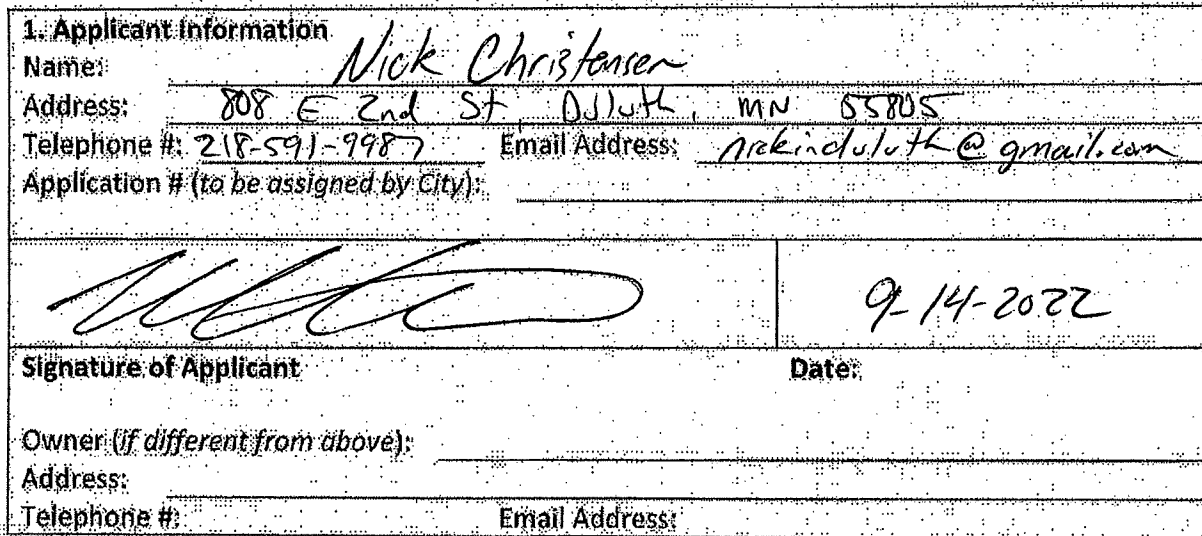 1. Applicant Information
Name: Nick Christensen
Address: 808 E 2nd St Duluth, MN 55805
Telephone #: 218-591-9987 Email Address: nickinduluth@gmail.com
Application # (to be assigned by City):
9-14-2022
Signature of Applicant Date:
Owner (if different from above):
Address:
Telephone #: Email Address: